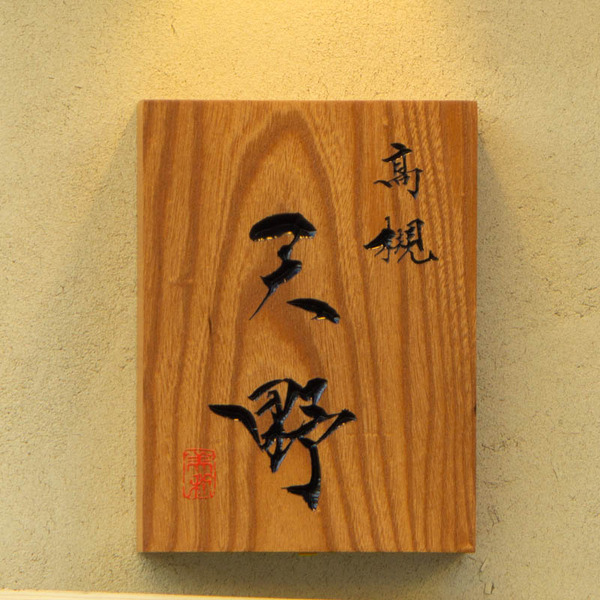 高槻
天野